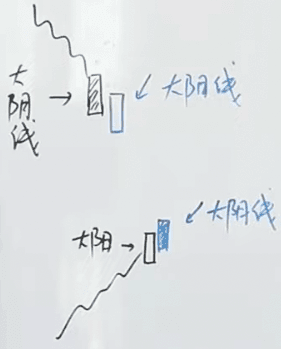 大阴线
大阳线
大阳
大阴线